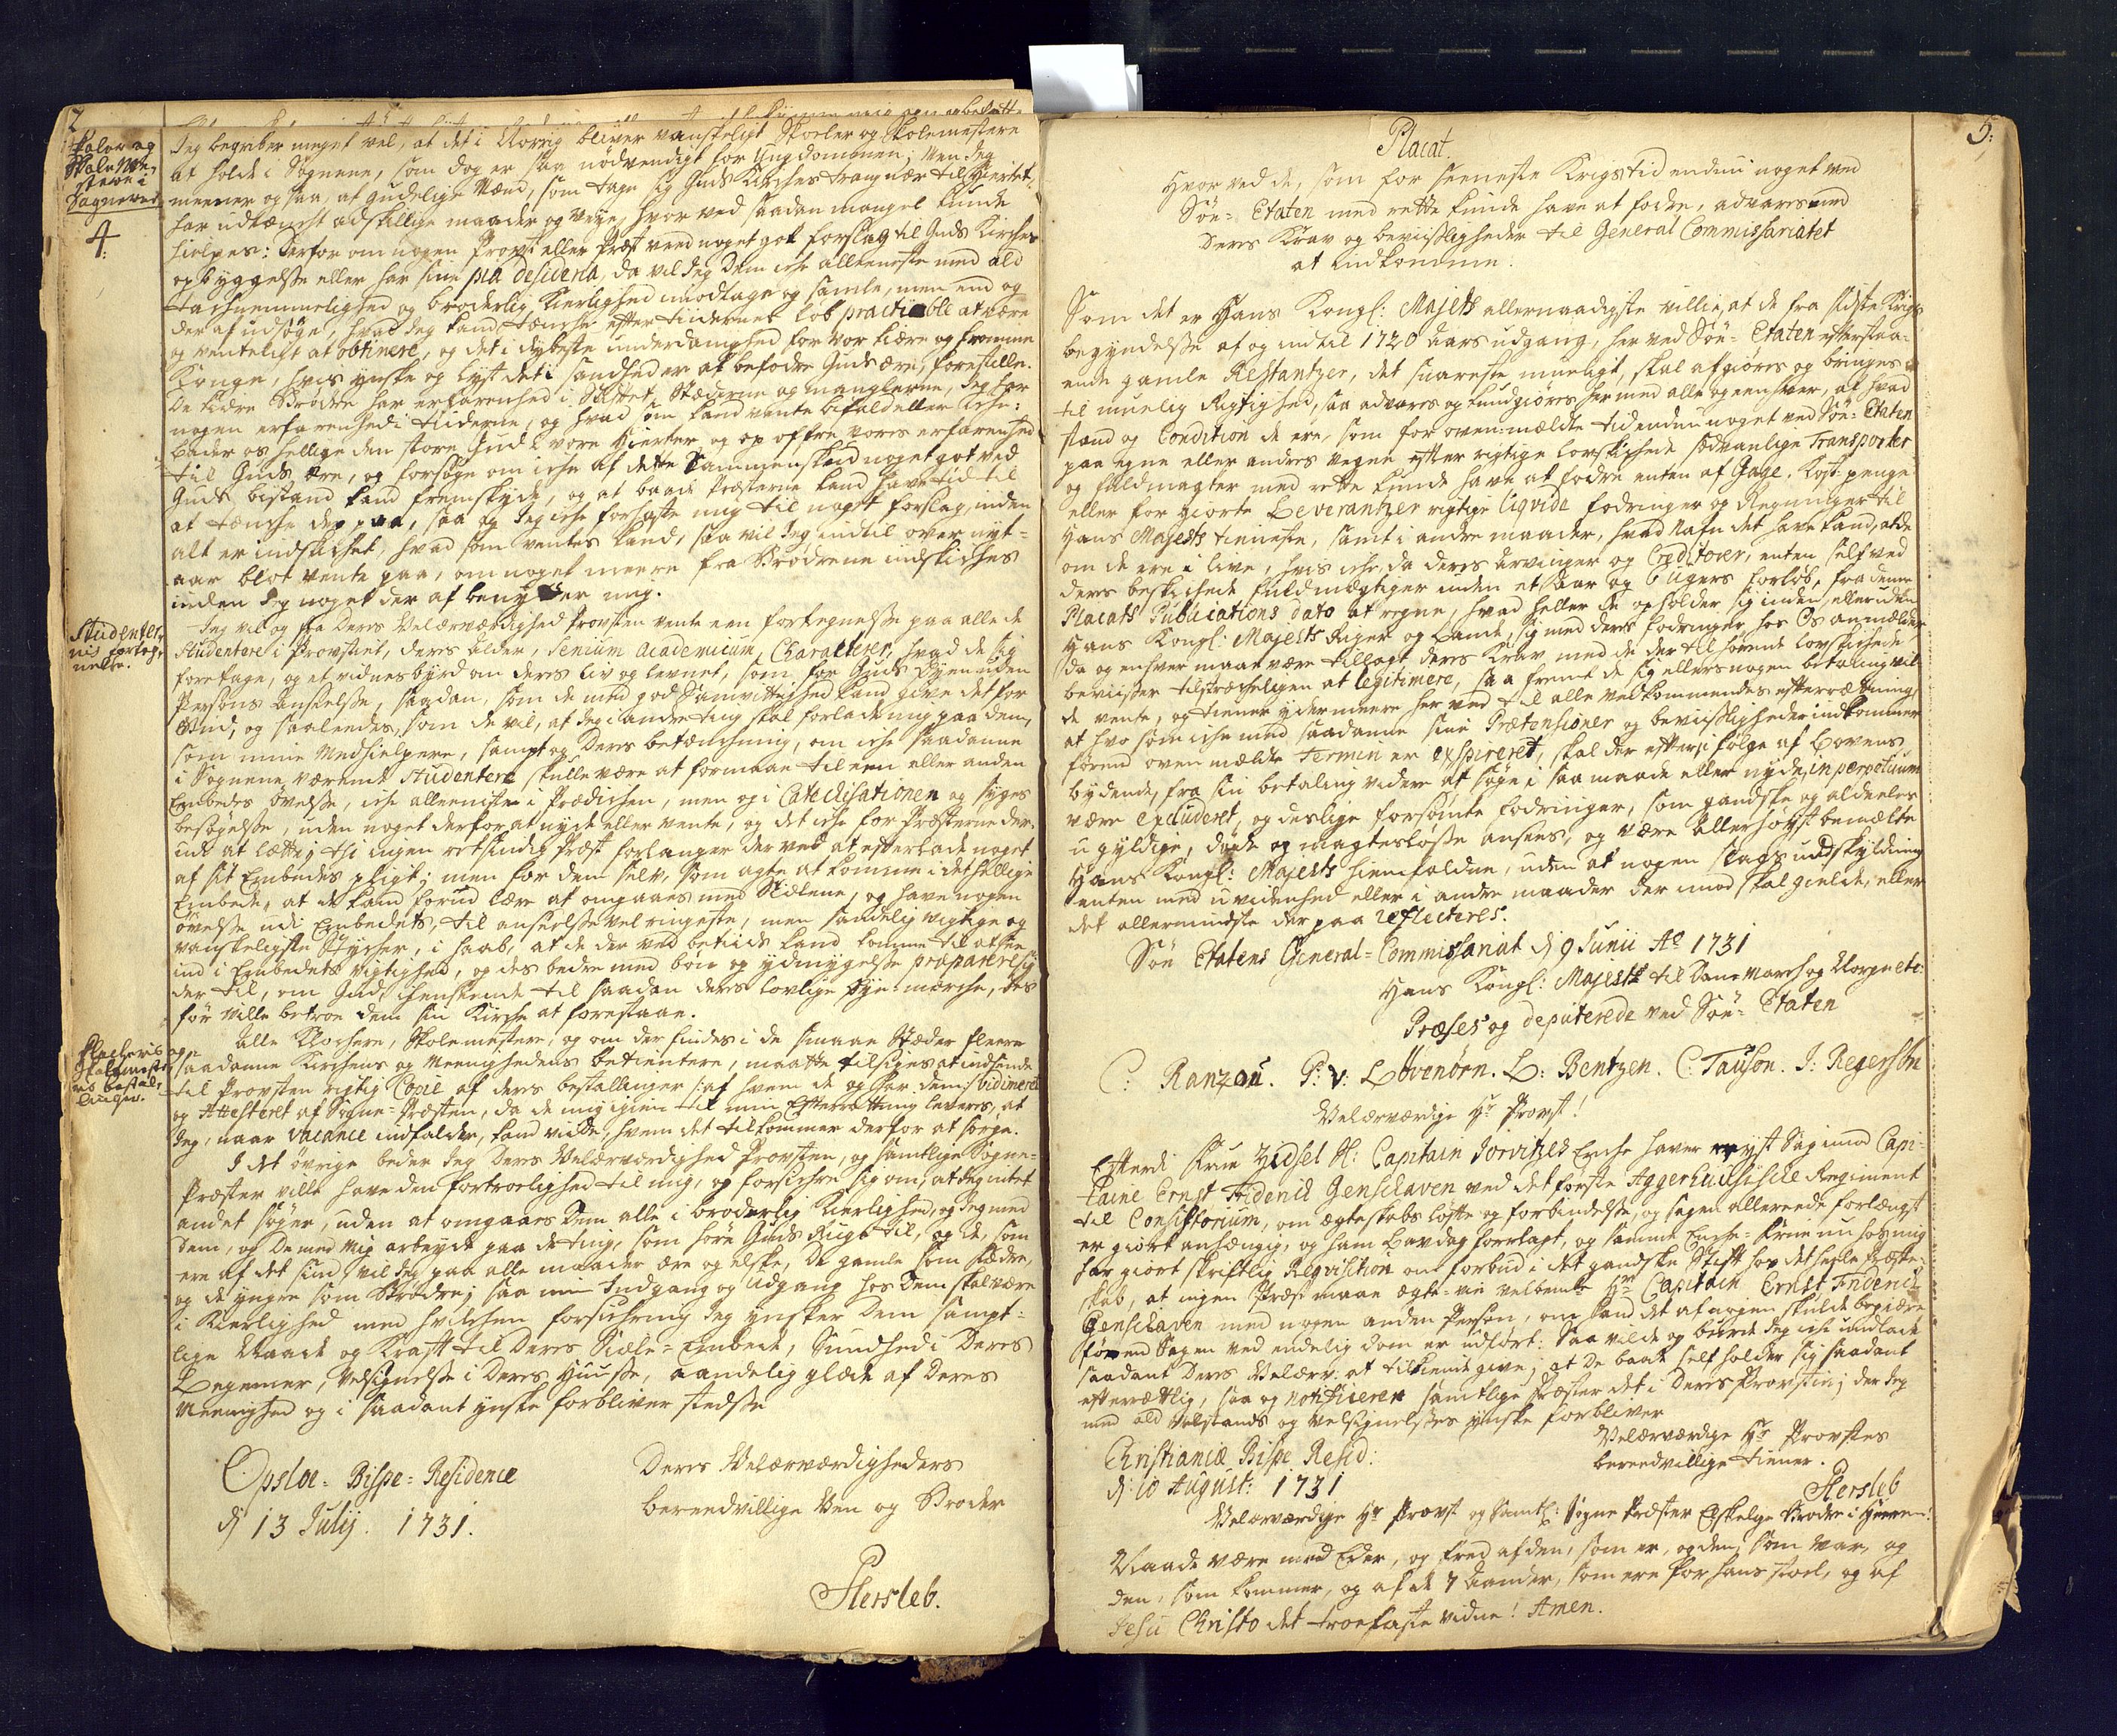 2
Skoler og
Skole Me-
stere i
Sognerne
4.
Jeg begriber meget vel, at det i Norrig bliver vanskeligt Skoeler og Skolemestere
at holde i Sognene, som dog er saa nödvendigt for Ungdommen; Men Jeg
meener og saa, at gudelige Mænd, som tage sig Guds Kirches trang nær til Hiertet,
har udtænckt adskillige maader og veye, hvor ved saadan mangel kunde
hielpes: Derfor om nogen Provst eller Præst veed noget got forslag til Guds Kirches
opbyggelsse eller har sine pia desideria, da vil Jeg dem iche alleeneste med ald
tachnemmelighed og broderlig Kierlighed imodtage og samle, men end og
der af udsöge, hvad Jeg kand tænche efter tiidernes löb practicable at være
og venteligt at obtinere, og det i dybeste underdanighed for vor kiære og fromme
Konge, hvis ynske og lyst det i sandhed er at befodre Guds ære, forestille.
De kiære Brödre har erfarenhed i Stiftet, Stæderne og manglerne, Jeg har
nogen erfarenhed i tiiderne, og hvad som kand vente bifald eller iche:
Lader os hellige den store Gud i vore Hierter, og op offre vores erfarenhed
til Guds ære, og forsöge om iche af dette Sammenskud noget got ved
Guds bistand kand fremskyde, og at baade Præsterne kand have tid til
at tænche der paa, saa og Jeg iche forhaste mig til noget forslag, inden
alt er indskichet, hvad som ventes kand, saa vil Jeg indtil over nyt-
aar blot vente paa, om noget meere fra Brödrene indskiches
inden Jeg noget der af benytter mig.
Studenter-
nis forteg-
nelse.
Jeg vil og fra Deres Velærværdighed Provsten vente een fortegnelsse paa alle de
Studentere i Provstiet, deres alder, Senium academicum, Characterer, hvad de sig
foretage, og et vidnesbyrd om deres liv og levnet, som for Guds Öyen uden
Persons Anseelsse, saadan, som de med god Samvittighed kand give det for
Gud, og saaleedes, som de vil, at Jeg i andre ting skal forlade mig paa dem,
som mine Medhielpere, sampt og Deres betænchning, om iche saadanne
i Sognene værende Studentere skulle være at formaae til een eller anden
Embedes övelsse, iche alleeniste i Prædichen, men og i Catechisationen og syges
besögelsse, uden noget derfor at nyde eller vente, og det iche for Præsterne der-
ude at lætte; thi ingen retsindig Præst forlanger der ved at efterlade noget
af sit Embedes pligt; men for dem selv, som agte at komme i det hellige
Embede, at de kand forud lære at omgaaes med Siælene, og have nogen
övelsse udi Embedets, til anseelsse vel ringeste, men sandelig vigtige og
vanskeligste Stycher, i haab, at de der ved betiids kand komme til at see
ind i Embedets vigtighed, og des bedre med bön og ydmygelsse præparere sig
der til, om Gud ihenseende til saadan deres lovlige Öye-mærche, des
för ville betroe dem sin Kirche at forestaae.
Klocheris og
Skolemeste-
nis bestal-
linger.
Alle Klochere, Skolemestere, og om der findes i de smaae Stæder fleere
saadanne Kirchens og Meenighedens betientere, maatte tilsiges at indsende
til Provsten rigtig Copie af deres bestallinger |: af hvem de og har dem :| vidimeret
og Attesteret af Sogne-Præsten, da de mig igien til min Efterrætning leveres, at
Jeg, naar vacance indfalder, kand viide, hvem det tilkommer derfor at sörge.
I det övrige beder Jeg Deres Velærværdighed Provsten, og samtlige Sogne-
Præster ville have den fortroelighed til mig, og forsichre sig om, at Jeg intet
andet söger, uden at omgaaes Dem alle i broderlig Kierlighed, og Jeg med
dem, og De med Mig arbeyde paa de ting, som höre Guds Rige til, og de, som
ere af det sind, vil Jeg paa alle maader ære og elske, De gamle som Fædre,
og de yngre som Brödre; saa min Indgang og udgang hos dem skal være
i Kierlighed med hvilchen forsichring Jeg ynsker Dem sampt-
lige Naade og Krafft til Deres Siæle-Embede, Sundhed i Deres
Legemer, Velsignelsse i Deres Huusse, aandelig glæde af Deres
Meenighed og i saadant ynske forbliver stedsse
Opsloe-Bispe-Residence
dj 13 Julij. 1731.
Deres Velærværdigheders
bereedvillige Ven og Broder
PHersleb.
5:
Placat.
Hvor ved de, som for seeneste Krigstid endnu noget ved
Söe-Etaten med rette kunde have at fodre, advares med
deres Krav og beviisligheder til General Commissariatet
at indkomme.
Som det er Hans Kongl: Majets allernaadigste villie, at de fra sidste Krigs
begyndelsse af og indtil 1720 aars udgang, her ved Söe-Etaten efterstaa-
ende gamle Restantzer, det snareste mueligt, skal afgiöres og bringes
til muelig Rigtighed, saa advares og kundgiöres her med alle og eenhver, af hvad
stand og Condition de ere, som for oven-mældte tid endnu noget ved Söe-Etaten
paa egne eller andres vegne efter rigtige lovskichede sædvanlige Transporter
og fuldmagter med rette kunde have at fodre enten af Gage, Kost penge
eller for giorte Leverantzer rigtige liqvide fodringer og Regninger til
Hans Majests tienneste, samt i andre maader, hvad Nafn det have kand, at de
om de ere i live, hvis iche, da deres Arvinger og Creditorer, enten self ved
deres beskichede fuldmægtiger inden et aar og 6 Ugers forlöb, fra denne
Placats Publications dato at regne, hvad heller de opholder sig inden, eller uden
Hans Kongl: Majests Riger og Lande, sig med deres fodringer hos Os anmælder
da og enhver maae være tillagt, deres Krav med de der til hörende lovskichede
beviiser tilstrecheligen at legitimere, saa fremt de sig ellers nogen betaling vil-
de vente, og tiener ydermeere her ved til alle Vedkommendes efterrætning,
at hvo som iche med saadanne sine Prætensioner og beviisligheder indkommer
förend ovenmældte Termin er exspireret, skal der efter i fölge af Lovens
bydende, fra sin betaling videre at söge i saa maade eller nyde, in perpetuum
være excluderet, og deslige forsömte fodringer, som gandske og aldeeles
ugyldige, döde og magteslösse ansees, og være Allerhöyst bemælte
Hans Kongl: Majests hiemfaldne, uden at nogen slags undskylding
enten med uvidenhed eller i andre maader der imod skal gielde, eller
det allermindste der paa reflecteres.
Söe Etatens General-Commissariat dj 9 Junii Ao 1731
Hans Kongl: Majests til Danemarch og Norge etc:
Præses og deputerede ved Söe-Etaten
C: Ranzou. P: v: Lövenörn. L: Bentzen. C: Tauson. J: Regerson
Velærværdige Hr Provst!
Efterdi Frue Zidsel Sl: Capitain Jorvitzes Enche haver reyst Sag imod Capi-
taine Ernst Friderich Genschaven ved det förste Aggerhuusische Regiment
til Consistorium, om ægteskabs löfte og forbindelsse, og sagen allereede forlængst
er giort anhængig, og ham Lavdag forelagt, og samme Enche-Frue nu hos mig
har giort skriftlig Reqvisition om forbud i det gandske Stift hos det heele Præste-
skab, at ingen Præst maae ægte-vie velbemte Hr Capitain Ernst Friderich
Genschaven med nogen anden Person, om hand det af nogen skulde begiære
förend Sagen ved endelig dom er udfört: Saa vilde og burde Jeg iche undlade
saadant Deres Velærv: at tilkiende give; at De baade self holder sig saadant
efterrættlig, saa og notificerer samtlige Præster det i Deres Provstie; der Jeg
med ald Velstands og Velsignelsses ynske forbliver
Velærværdige Hr Provstes
bereedvillige tiener.
PHersleb
Christianiæ Bispe Resid:
dj 10 August: 1731
Velærværdige Hr Provst og Samtl: Sogne Præster Elskelige Brödre i Herren!
Naade være med Eder, og fred af den, som er, og den, som var, og
den, som kommer, og af de 7 Aander, som ere for hans stoel, og af
Jesu Christo det troefaste vidne! Amen.